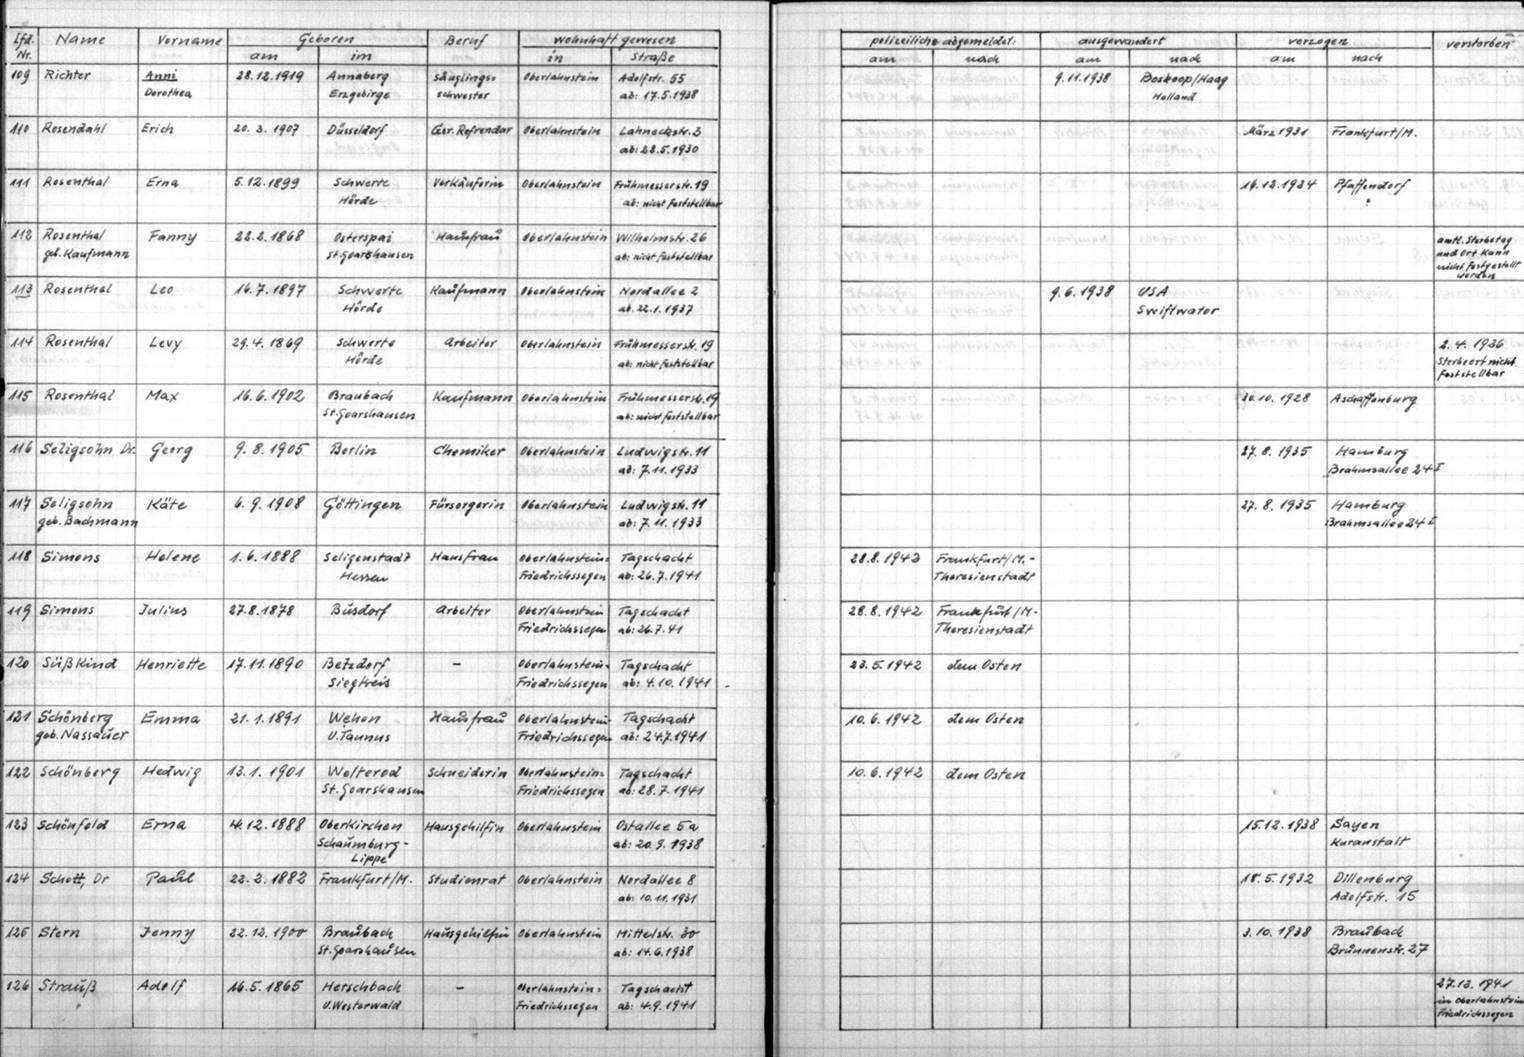 Lfd. Nr. Name Vorname Geboren am im Beruf wohnhaft gewesen in Straße polizeilich abgemeldet: am nach ausgewandert am nach verzogen am nach verstorben
109 Richter Anni 28.12.1919 Annaberg Säuglings- Oberlahnstein Adolfstr. 55 9.11.1938 Boskoop/Haag
Dorothea Erzgebirge schwester ab: 17.5.1938 Holland
110 Rosendahl Erich 20. 3. 1907 Düsseldorf Ger. Refrendar Oberlahnstein Lahneckstr. 3 März 1931 Frankfurt/M.
ab: 28.5.1930
111 Rosenthal Erna 5.12.1899 Schwerte Verkäuferin Oberlahnstein Frühmesserstr. 19 Pfaffendorf
Hörde ab: nicht feststellbar
112 Rosenthal Fanny 22.2.1868 Osterspai Hausfrau Oberlahnstein Wilhelmstr. 26 amtl. Sterbetag
geb. Kaufmann St. Goarshausen ab: nicht feststellbar und Ort kann
nicht festgestellt
werden
113 Rosenthal Leo 16.7.1897 Schwerte Kaufmann Oberlahnstein Nordallee 2 9.6.1938 USA
Hörde ab. 22.1.1937 Swiftwater
114 Rosenthal Levy 29.4.1869 Schwerte Arbeiter Oberlahnstein Frühmesserstr. 19 2.4.1936
Hörde ab: nicht feststellbar Sterbeort nicht
feststellbar
115 Rosenthal Max 16.6.1902 Braubach Kaufmann Oberlahnstein Frühmesserstr. 19 Aschaffenburg
St. Goarshausen ab: nicht feststellbar
116 Seligsohn Dr. Georg 9.8.1905 Berlin Chemiker Oberlahnstein Ludwigstr. 11 27.8.1935 Hamburg
ab: 7.11.1933 Brahmsallee 24 I
117 Seligsohn Käte 6.9.1908 Göttingen Fürsorgerin Oberlahnstein Ludwigstr. 11 27.8.1935 Hamburg
geb. Bachmann ab: 7.11.1933 Brahmsallee 24 I
118 Simons Helene 1.6.1888 Seligenstadt Hausfrau Oberlahnstein- Tagschacht Frankfurt/M.-
Hessen Friedrichssegen ab: 26.7.1941 Theresienstadt
119 Simons Julius 27.8.1878 Büsdorf Arbeiter Oberlahnstein Tagschacht 28.8.1942 Frankfurt/M-
Friedrichssegen ab: 26.7.41 Theresienstadt
120 Süßkind Henriette 17.11.1890 Betzdorf - Oberlahnstein- Tagschacht 23.5.1942 dem Osten
Siegkreis Friedrichssegen ab: 4.10.1941
121 Schönberg Emma 21.1.1891 Wehen Hausfrau Oberlahnstein- Tagschacht 10.6.1942 dem Osten
geb. Nassauer U. Taunus Friedrichssegen ab: 24.7.1941
122 Schönberg Hedwig 13.1.1901 Welterod Schneiderin Oberlahnstein- Tagschacht 10.6.1942 dem Osten
St. Goarshausen Friedrichssegen ab: 28.7.1941
123 Schönfeld Erna 4.12.1888 Oberkirchen Hausgehilfin Oberlahnstein Ostallee 5a 15.12.1938 Sayen
Schaumburg- ab: 20.9.1938 Kuranstalt
Lippe
124 Schott, Dr Paul 22.2.1882 Frankfurt/M. Studienrat Oberlahnstein Nordallee 8 18.5.1932 Dillenburg
ab: 10.11.1931 Adolfstr. 15
125 Stern Jenny 22.12.1900 Braubach Hausgehilfin Oberlahnstein Mittelstr. 30 3.10.1938 Braubach
St. Goarshausen ab: 14.6.1938 Brunnenstr. 27
126 Strauß Adolf 16.5.1865 Herschbach - Oberlahnstein- Tagschacht 27.12.1941
U. Westerwald Friedrichssegen ab: 4.9.1941 in Oberlahnstein
Friedrichssegen